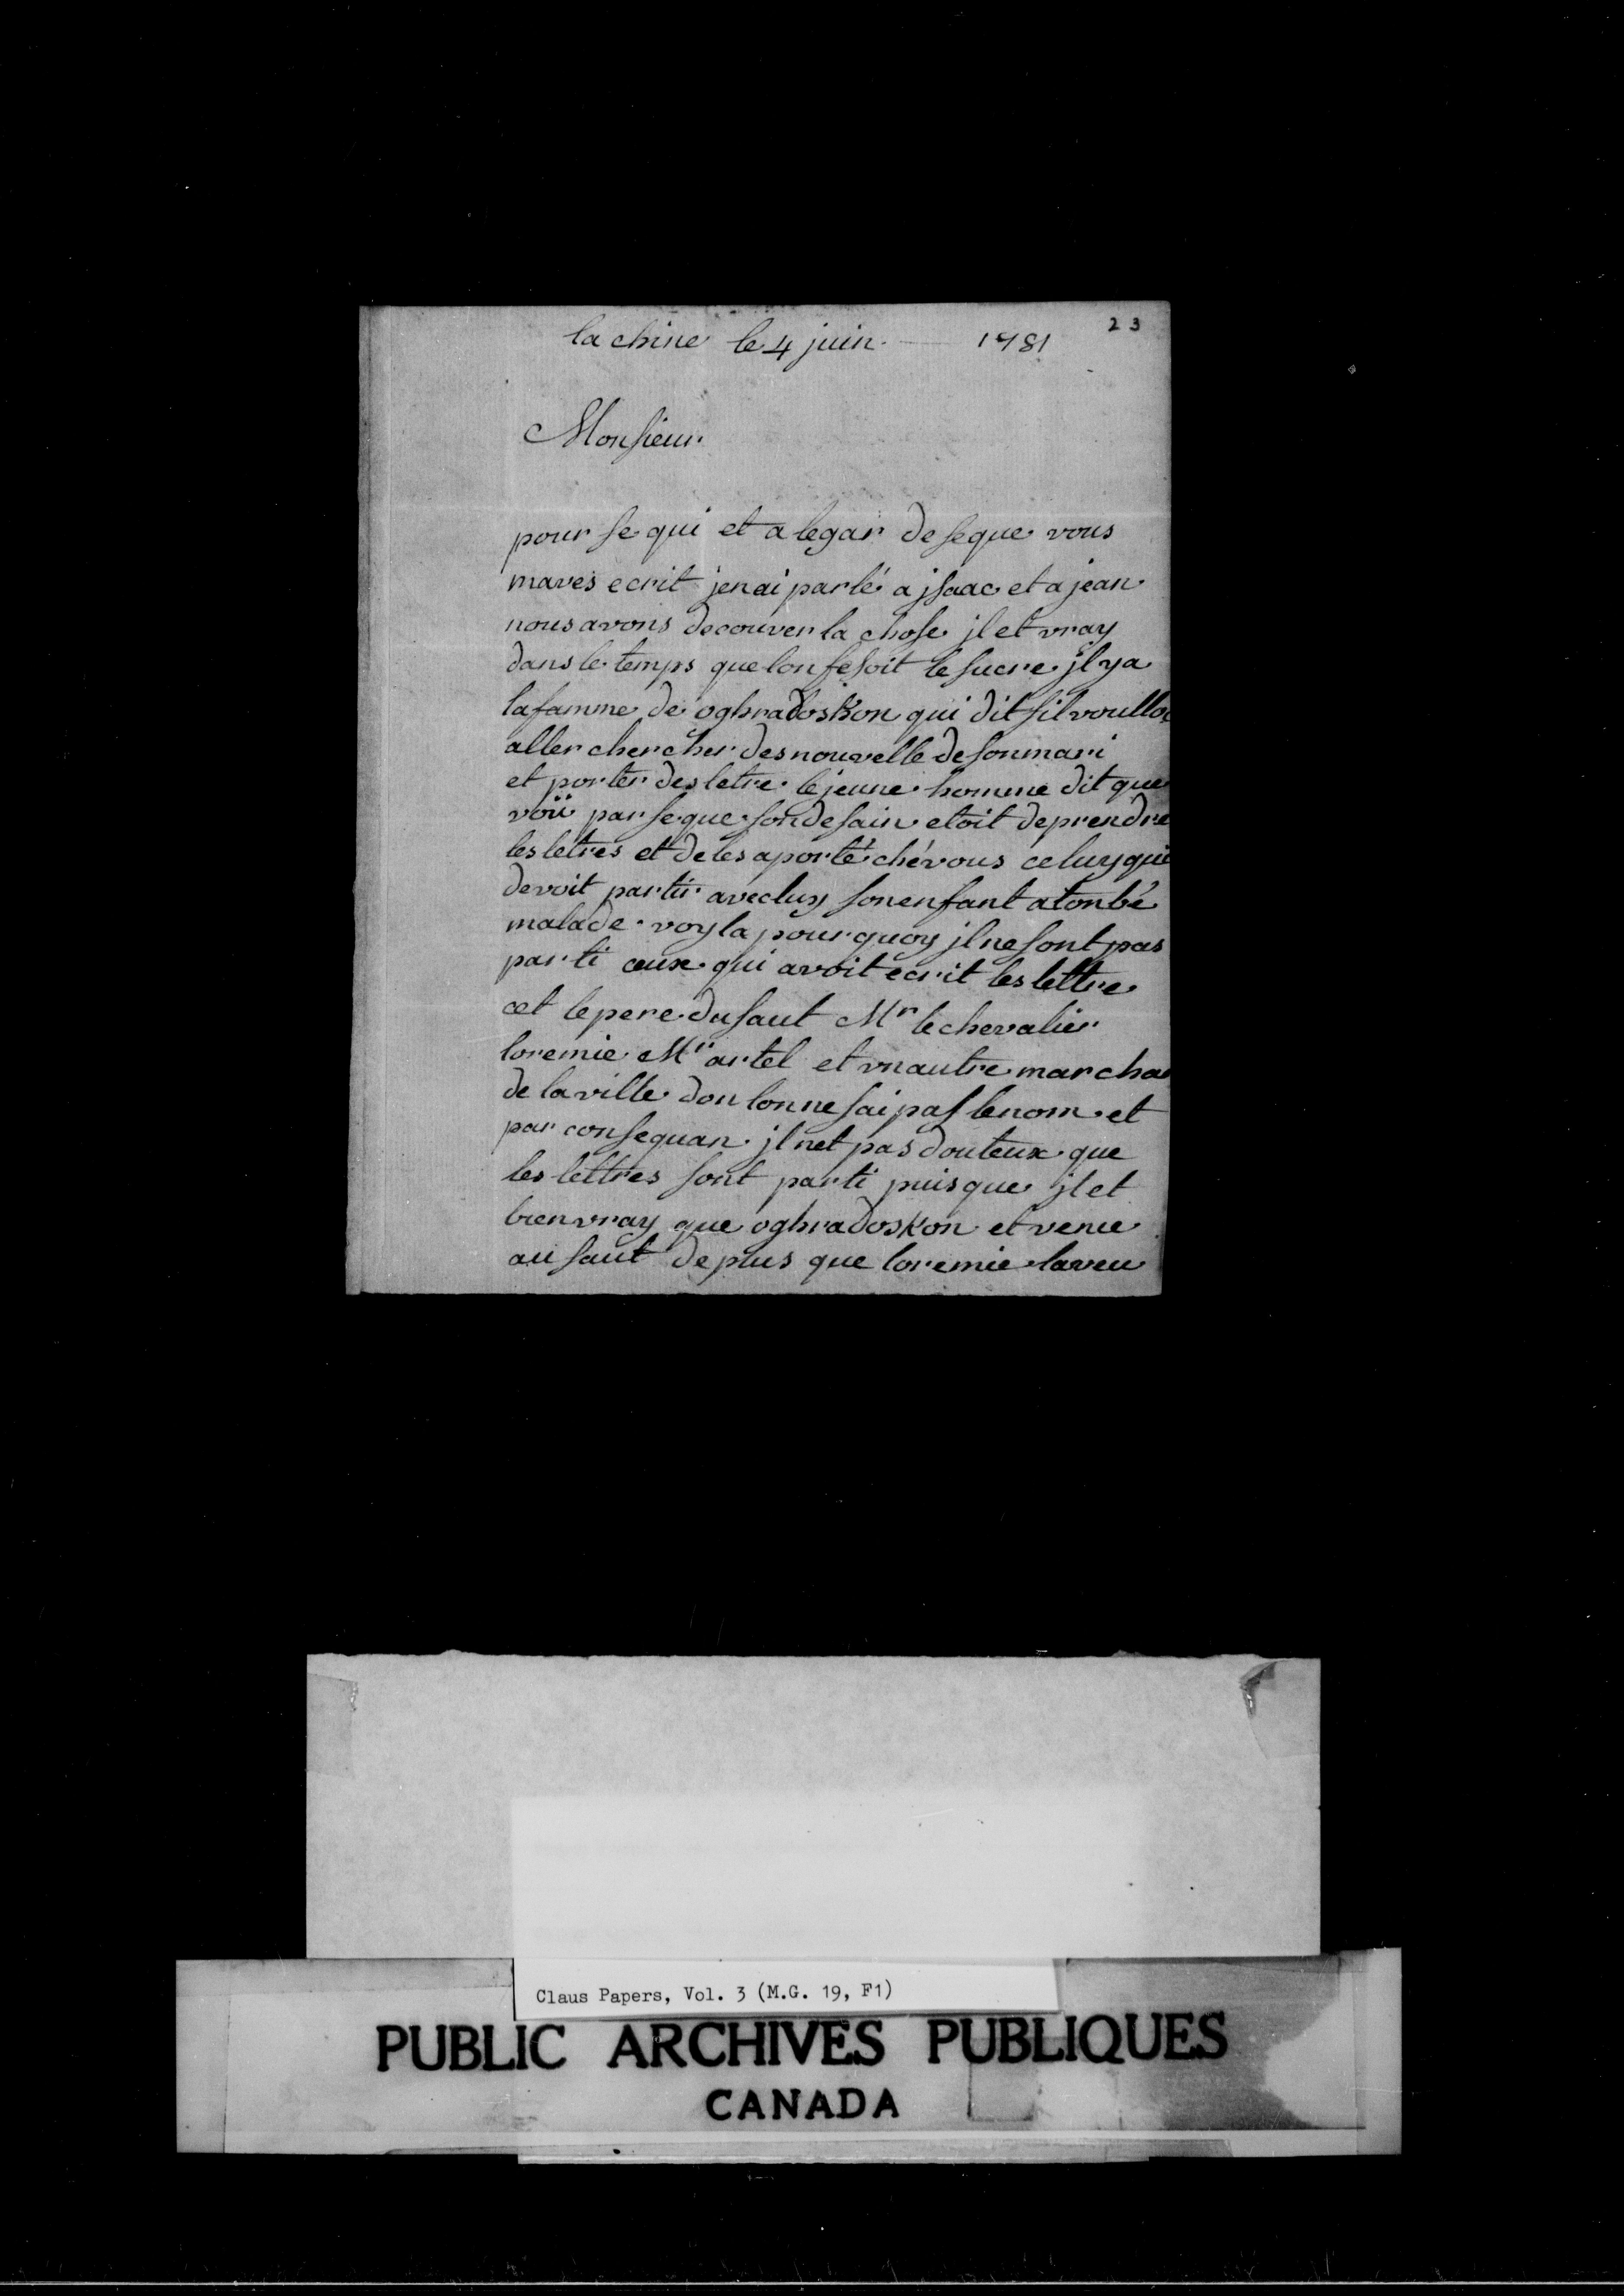 23
la chine le 4 juin 1781
Monsieur
pour se qui et a legar de seque vous
maves ecrit jenai parlé a jsaac et a jean
nous avons decouver la chose jl et vray
dans le temps que lon fesoit le sucre jl ya
la famme de oghradoskon qui dit sil voulloi
aller chercher des nouvelle de son mari
et porter des letre le jeune homme dit que
voüi par seque son desain etoit de prendre
les letres et de les aporté ché vous celuy qui
devoit partir avec luy son enfant a tonbé
malade voyla pourquoy jl ne sont pas
parti ceux qui avoit ecrit les lettre
cet le pere du saut Mr le chevalier
loremie Mr artel et un autre marchan
de la ville don lon ne sai pas le nom et
par consequan jl net pas douteux que
les lettres sont parti puis que jl et
bien vray que oghradoskon et venu
au saut de plus que loremie laveu
Claus Papers, Vol. 3 (M.G. 19, F1)
PUBLIC ARCHIVES PUBLIQUES
CANADA